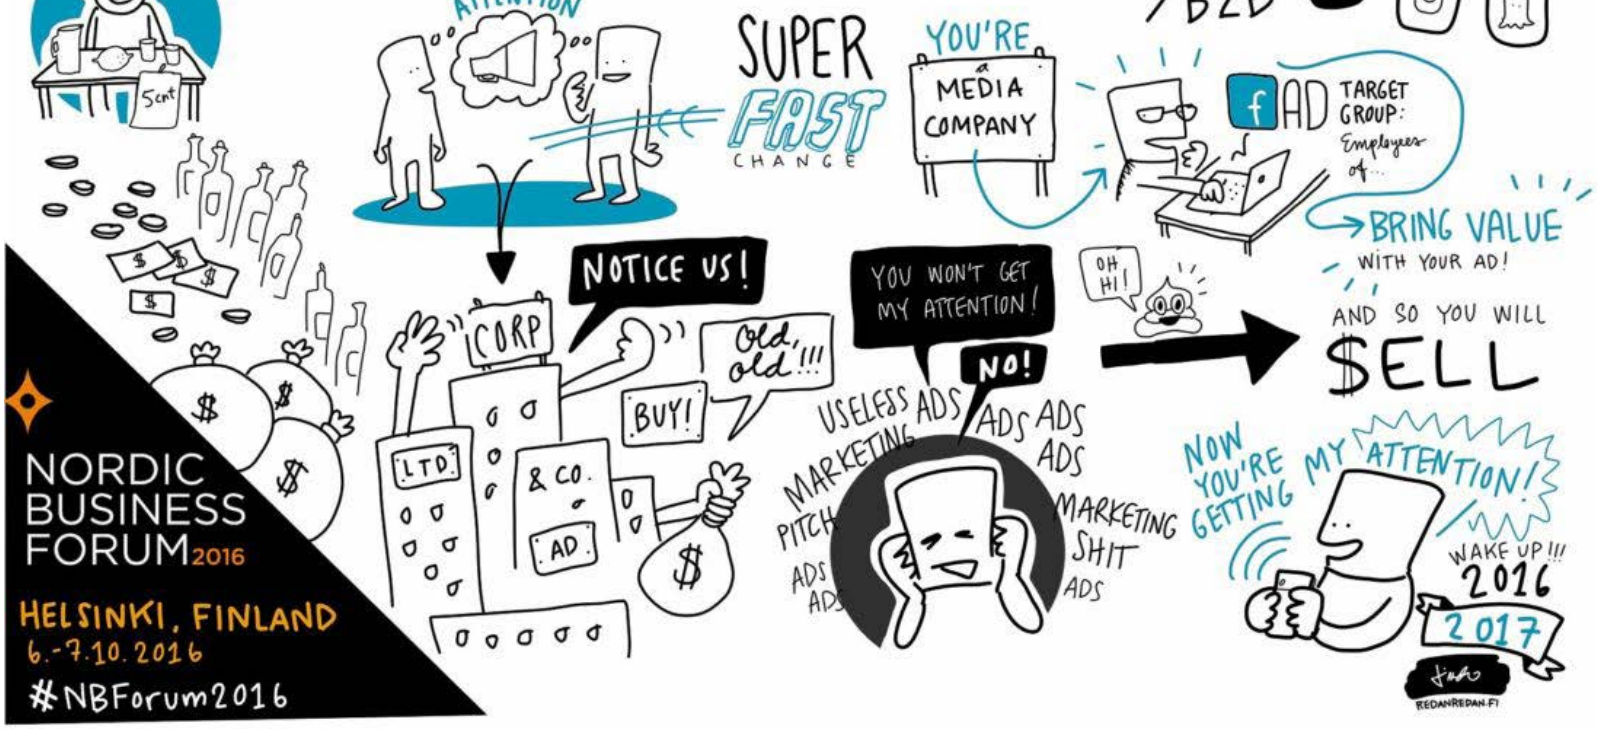 ATTENTION
5 cnt
SUPER
FAST
CHANGE
YOU'RE
a
MEDIA
COMPANY
/B2B
f AD
TARGET
GROUP:
Employees
of...
BRING VALUE
WITH YOUR AD!
AND SO YOU WILL
$ELL
$
$
$
$
$
$
$
NOTICE US!
CORP
Old,
old!!!
BUY!
LTD.
& CO.
AD
$
YOU WON'T GET
MY ATTENTION!
NO!
OH
HI!
USELESS ADS
ADS ADS
ADS
MARKETING
PITCH
ADS
ADS
MARKETING
SHIT
ADS
NOW
YOU'RE
GETTING
MY ATTENTION!
WAKE UP!!!
2016
2017
REDANREDAN.FI
NORDIC
BUSINESS
FORUM 2016
HELSINKI, FINLAND
6.-7.10.2016
#NBForum2016